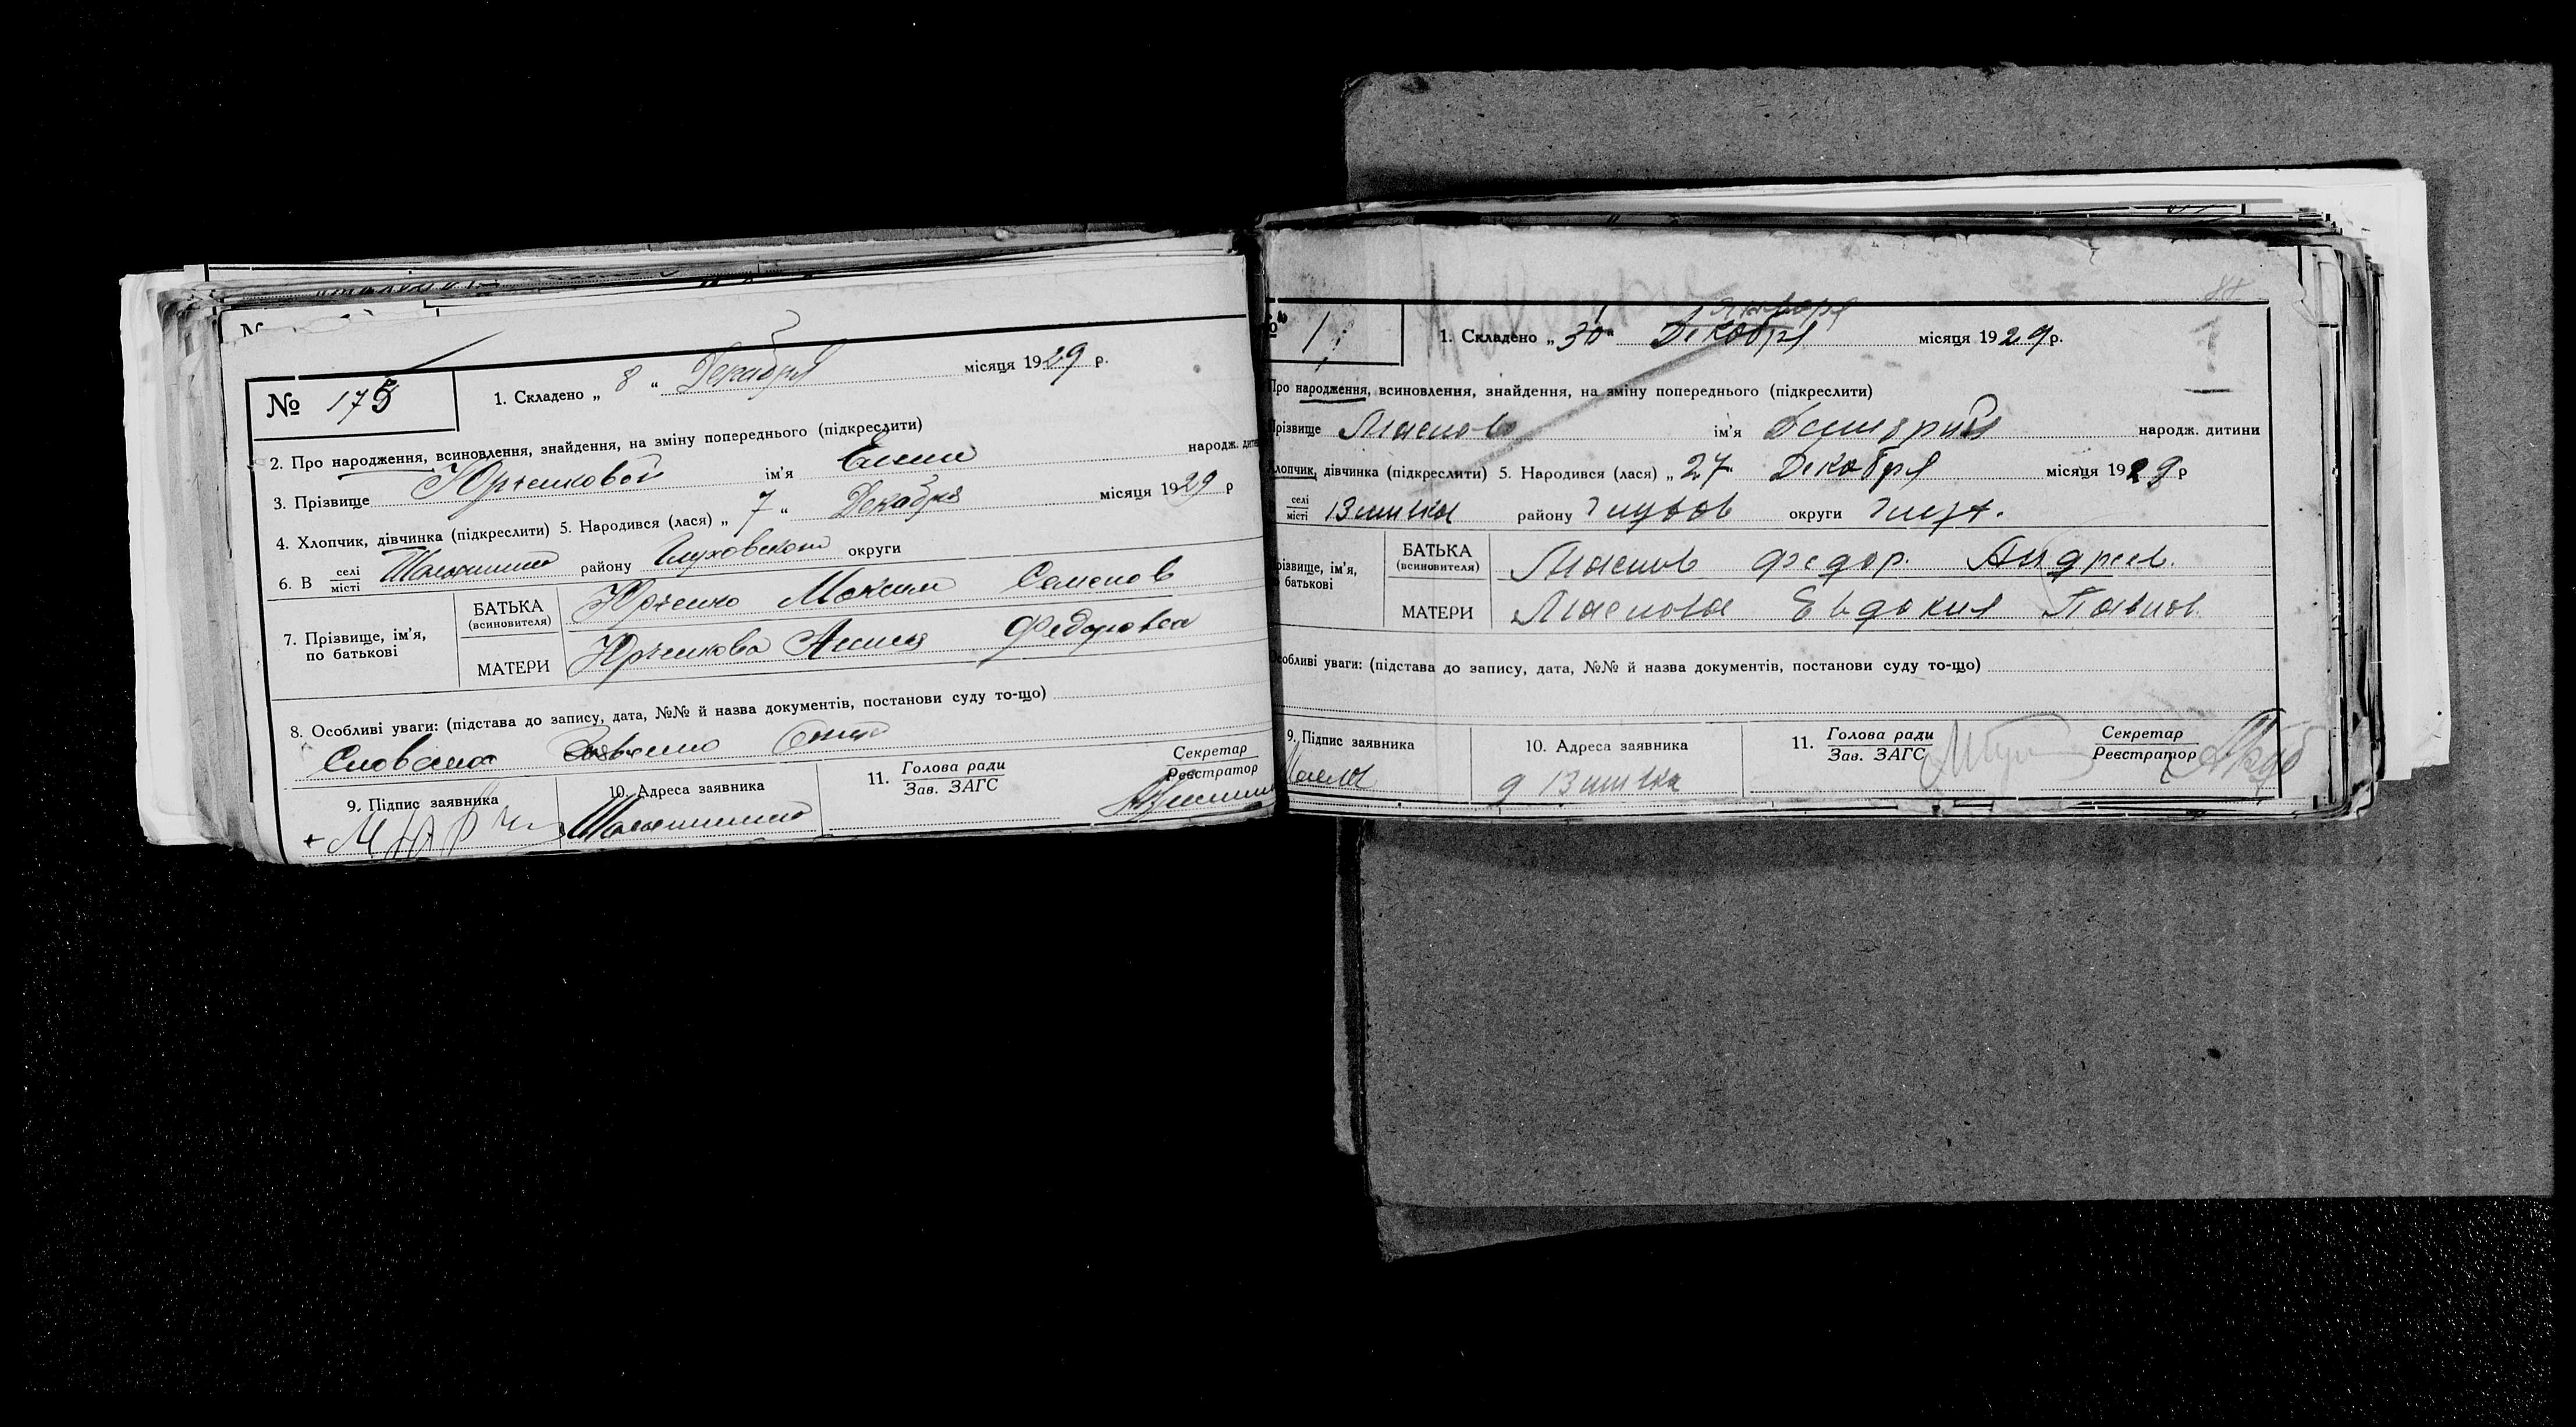 № 175
1. Складено „ 8 “ Декабря місяця 1929 р.
2. Про народження, всиновлення, знайдення, на зміну попереднього (підкреслити)
3. Прізвище Юрченковой ім'я Елена народж. дити
4. Хлопчик, дівчинка (підкреслити) 5. Народився (лася) „ 7 “ Декабря місяця 1929 р
6. В селі місті району Глуховского округи
7. Прізвище, ім'я, по батькові
БАТЬКА (всиновителя) Юрченко Максим Семенов
МАТЕРИ Юрченкова Анна Федоровна
8. Особліві уваги: (підстава до запису, дата, №№ й назва документів, постанови суду то-що)
Словесна
9. Підпис заявника
10. Адреса заявника
11. Голова ради Зав. ЗАГС
Секретар Реєстратор
1
января
1. Складено „ 30 “ Декабря місяця 1929 р.
Про народження, всиновлення, знайдення, на зміну попереднього (підкреслити)
Прізвище Маслов ім'я Дмитрий народж. дитини
Хлопчик, дівчинка (підкреслити) 5. Народився (лася) „ 27 “ Декабря місяця 1929 р
селі місті району Глухов округи Глух.
Прізвище, ім'я, батькові
БАТЬКА (всиновителя) Маслов Федор. Андреев.
МАТЕРИ Маслова Евдокия Павлов.
Особліві уваги: (підстава до запису, дата, №№ й назва документів, постанови суду то-що)
9. Підпис заявника
10. Адреса заявника
11. Голова ради Зав. ЗАГС
Секретар Реєстратор